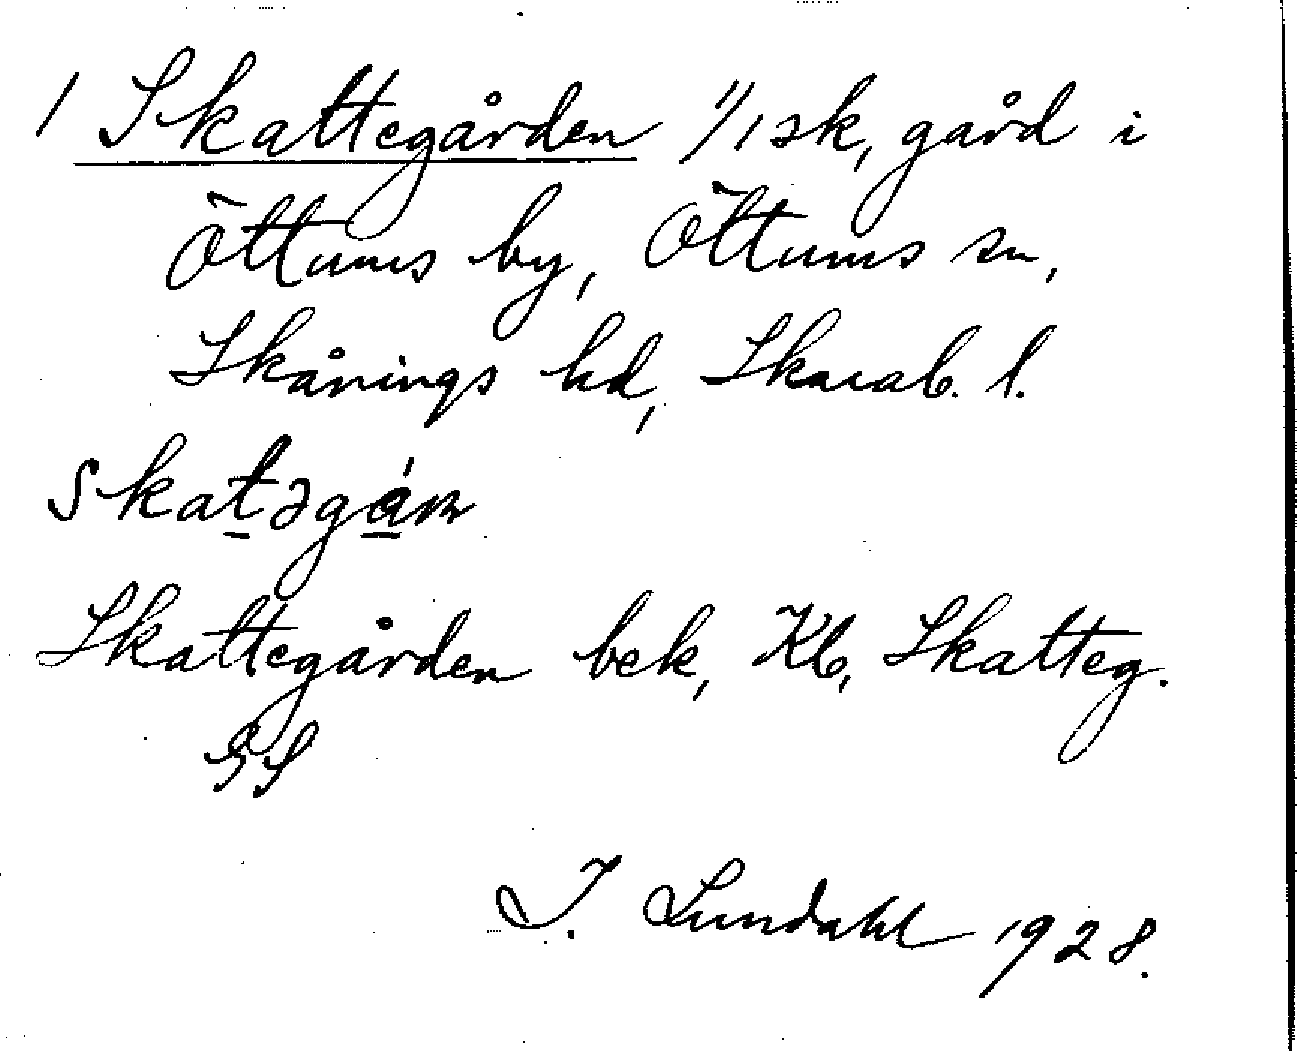 1 Skattegården 1/1 sk, gård i
Öttums by, Öttums sn,
Skånings hd, Skarab. l.
Skatəgán
Skattegården bek, Kb, Skatteg.
GS
I. Lundahl 1928.